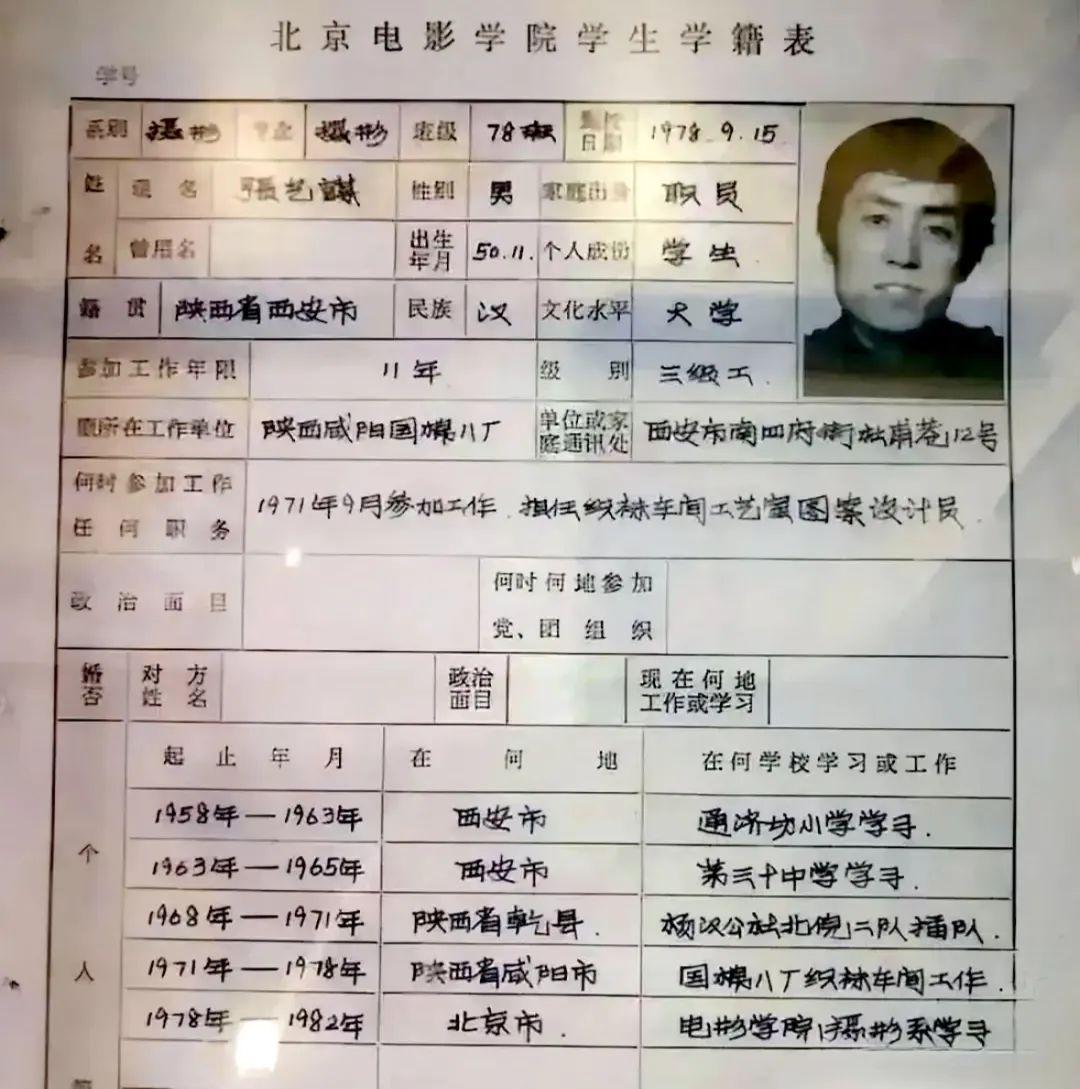 北京电影学院学生学籍表
学号
系别 摄影 专业 摄影 班级 78班 到校日期 1978.9.15
姓名 现名 張艺謀 性别 男 家庭出身 职员
曾用名 出生年月 50.11. 个人成份 学生
籍贯 陕西省西安市 民族 汉 文化水平 大学
参加工作年限 11年 级别 三级工.
原所在工作单位 陕西咸阳国棉八厂 单位或家庭通讯处 西安市南四府街社甫巷12号
何时参加工作任何职务 1971年9月参加工作.担任织袜车间工艺室图案设计员.
政治面目 何时何地参加党、团组织
婚否 对方姓名 政治面目 现在何地工作或学习
起止年月 在何地 在何学校学习或工作
1958年—1963年 西安市 通济坊小学学习.
1963年—1965年 西安市 第三十中学学习.
1968年—1971年 陕西省乾县. 杨汉公社北倪二队插队.
1971年—1978年 陕西省咸阳市 国棉八厂织袜车间工作.
1978年—1982年 北京市. 电影学院摄影系学习
个人